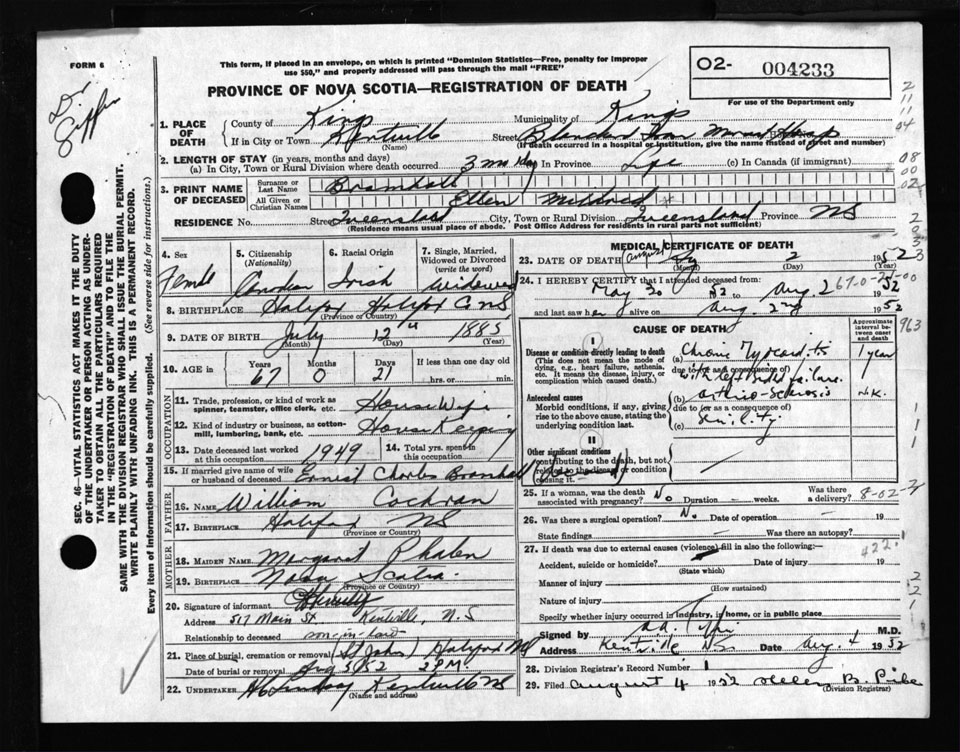 FORM 6
This form, if placed in an envelope, on which is printed "Dominion Statistics—Free, penalty for improper
use $50," and properly addressed will pass through the mail "FREE"
O2- 004233
For use of the Department only
PROVINCE OF NOVA SCOTIA—REGISTRATION OF DEATH
Dr
Giffin
1. PLACE OF DEATH
County of Kings Municipality of Kings
If in City or Town Kentville (Name) Street Blanchard Mem Hosp
(If death occurred in a hospital or institution, give the name instead of street and number)
2. LENGTH OF STAY (in years, months and days)
(a) In City, Town or Rural Division where death occurred 3 mo In Province Life (c) In Canada (if immigrant)
3. PRINT NAME OF DECEASED
Surname or Last Name Bramhall
All Given or Christian Names Ellen Mildred
RESIDENCE No. Street Queensland City, Town or Rural Division Queensland Province NS
(Residence means usual place of abode. Post Office Address for residents in rural parts not sufficient)
4. Sex Female
5. Citizenship (Nationality) Canadian
6. Racial Origin Irish
7. Single, Married, Widowed or Divorced (write the word) Widowed
8. BIRTHPLACE Halifax Halifax Co NS
(Province or Country)
9. DATE OF BIRTH July 12th 1885
(Month) (Day) (Year)
10. AGE in Years 67 Months 0 Days 21 If less than one day old
hrs. or min.
OCCUPATION
11. Trade, profession, or kind of work as spinner, teamster, office clerk, etc. House Wife
12. Kind of industry or business, as cotton-mill, lumbering, bank, etc. House Keeping
13. Date deceased last worked at this occupation 1949 14. Total yrs. spent in this occupation
15. If married give name of wife or husband of deceased Ernest Charles Bramhall
FATHER
16. Name William Cochran
17. Birthplace Halifax NS
(Province or Country)
MOTHER
18. MAIDEN NAME Margaret Phalen
19. BIRTHPLACE Nova Scotia
(Province or Country)
20. Signature of informant
Address 517 Main St. Kentville, N.S
Relationship to deceased son-in-law
21. Place of burial, cremation or removal (St Johns) Halifax NS
Date of burial or removal Aug 5/52 2 PM.
22. UNDERTAKER Kentville NS
(Name and address)
MEDICAL CERTIFICATE OF DEATH
23. DATE OF DEATH August 2 1952
(Month) (Day) (Year)
24. I HEREBY CERTIFY that I attended deceased from:
May 30 52 to Aug. 2 1952
and last saw her alive on Aug. 2nd 1952
CAUSE OF DEATH
Approximate interval between onset and death
I
Disease or condition directly leading to death
(This does not mean the mode of dying, e.g., heart failure, asthenia, etc. It means the disease, injury, or complication which caused death.)
(a) Chronic Myocarditis 1 year
due to (or as a consequence of)
with left sided failure.
Antecedent causes
Morbid conditions, if any, giving rise to the above cause, stating the underlying condition last.
(b) Arterio-sclerosis N.K.
due to (or as a consequence of)
(c) Senility
II
Other significant conditions
contributing to the death, but not related to the disease or condition causing it.
25. If a woman, was the death associated with pregnancy? No Duration - weeks. Was there a delivery?
26. Was there a surgical operation? No. Date of operation - 19
State findings Was there an autopsy?
27. If death was due to external causes (violence) fill in also the following:—
Accident, suicide or homicide? Date of injury 19
(State which)
Manner of injury
(How sustained)
Nature of injury
Specify whether injury occurred in industry, in home, or in public place
Signed by M.D.
Address Kentville NS Date Aug. 4 1952
28. Division Registrar's Record Number 1
29. Filed August 4 1952 Helen B.
(Division Registrar)
SEC. 46—VITAL STATISTICS ACT MAKES IT THE DUTY
OF THE UNDERTAKER OR PERSON ACTING AS UNDER-
TAKER TO OBTAIN ALL THE PARTICULARS REQUIRED
IN THE "REGISTRATION OF DEATH" AND TO FILE THE
SAME WITH THE DIVISION REGISTRAR WHO SHALL ISSUE THE BURIAL PERMIT.
WRITE PLAINLY WITH UNFADING INK. THIS IS A PERMANENT RECORD.
Every item of information should be carefully supplied. (See reverse side for instructions.)